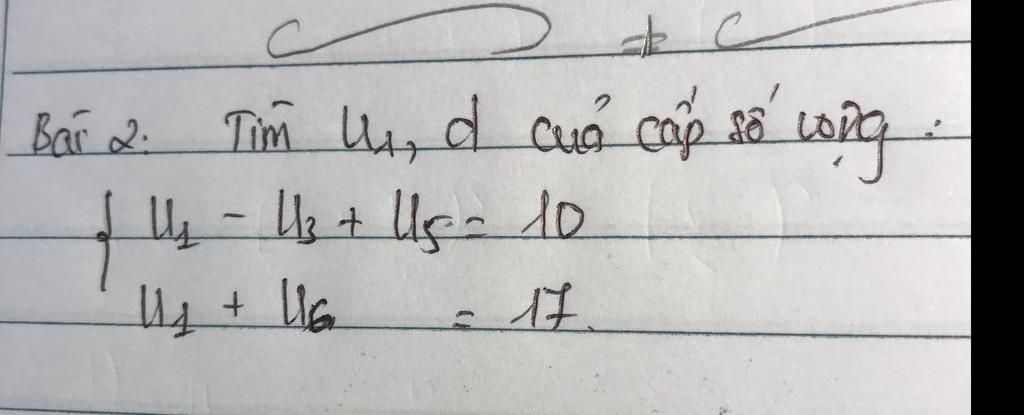 Bài 2: Tìm U1, d của cấp số cộng :
{ U1 - U3 + U5 = 10
U1 + U6 = 17.